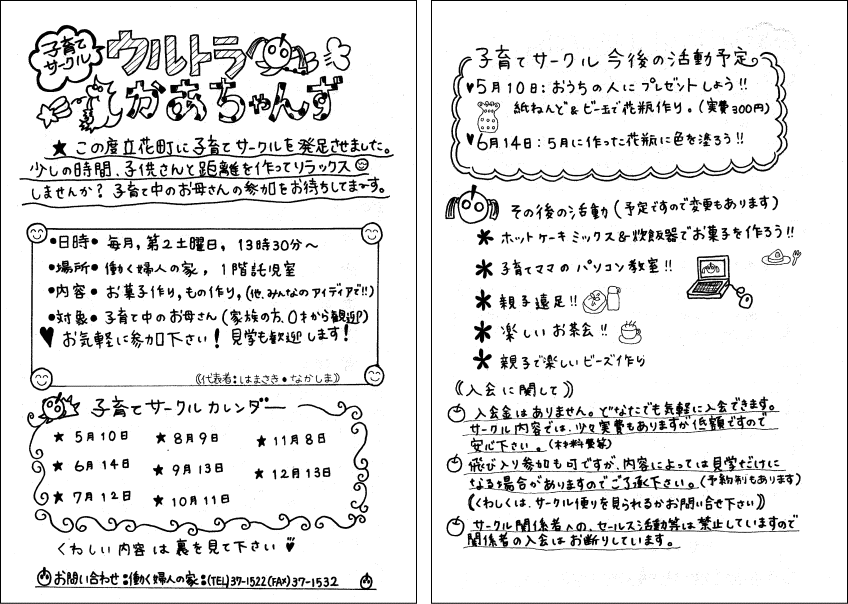 子育て
サークル
ウルトラ
かあちゃんず
★ この度立花町に子育てサークルを発足させました。
少しの時間、子供さんと距離を作ってリラックス
しませんか？ 子育て中のお母さんの参加をお待ちしてまーす。
•日時• 毎月，第2土曜日，13時30分〜
•場所• 働く婦人の家，1階託児室
•内容• お菓子作り，もの作り，(他、みんなのアイディアで!!)
•対象• 子育て中のお母さん (家族の方、0才から歓迎)
♥ お気軽に参加下さい！ 見学も歓迎します！
《代表者：はまさき・なかしま》
子育てサークルカレンダー
★ 5月10日 ★ 8月9日 ★ 11月8日
★ 6月14日 ★ 9月13日 ★ 12月13日
★ 7月12日 ★ 10月11日
くわしい内容は裏を見て下さい♥
お問い合わせ：働く婦人の家：(TEL)37-1522(FAX)37-1532
子育てサークル 今後の活動予定
♥5月10日：おうちの人にプレゼントしよう!!
紙ねんど&ビー玉で花瓶作り。(実費300円)
♥6月14日：5月に作った花瓶に色を塗ろう!!
その後の活動 (予定ですので変更もあります)
＊ ホットケーキミックス&炊飯器でお菓子を作ろう!!
＊ 子育てママのパソコン教室!!
＊ 親子遠足!!
＊ 楽しいお茶会!!
＊ 親子で楽しいビーズ作り
《入会に関して》
入会金はありません。どなたでも気軽に入会できます。
サークル内容では、少々実費もありますが低額ですので
安心下さい。(材料費等)
飛び入り参加も可ですが、内容によっては見学だけに
なる場合がありますのでご了承下さい。(予約制もあります)
《くわしくは、サークル便りを見られるかお問い合せ下さい》
サークル関係者への、セールス活動等は禁止していますので
関係者の入会はお断りしています。